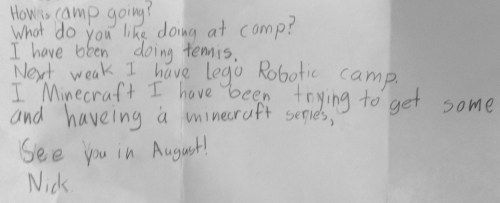 How is camp going?
What do you like doing at camp?
I have been doing tennis.
Next weak I have lego Robotic camp.
I Minecraft I have been trying to get some
and haveing a minecraft series,
See you in August!
Nick